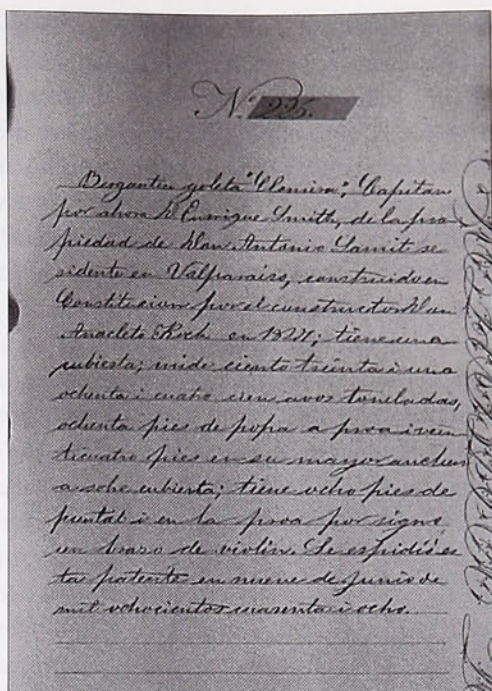 N.º 225.
Bergantin goleta "Clemira"; Capitan
por ahora D. Enrrique Smith, de la pro
piedad de don Antonio Lamit re
sidente en Valparaiso, construido en
Constitucion por el constructor don
Anacleto Roch en 1827; tiene una
cubierta; mide ciento treinta i una
ochenta i cuatro cien avos toneladas,
ochenta pies de popa a proa i vein
ticuatro pies en su mayor anchur
a sobre cubierta; tiene ocho pies de
puntal i en la proa por signo
un brazo de violin. Se espidió es
ta patente en nueve de Junio de
mil ochocientos cuarenta i ocho.